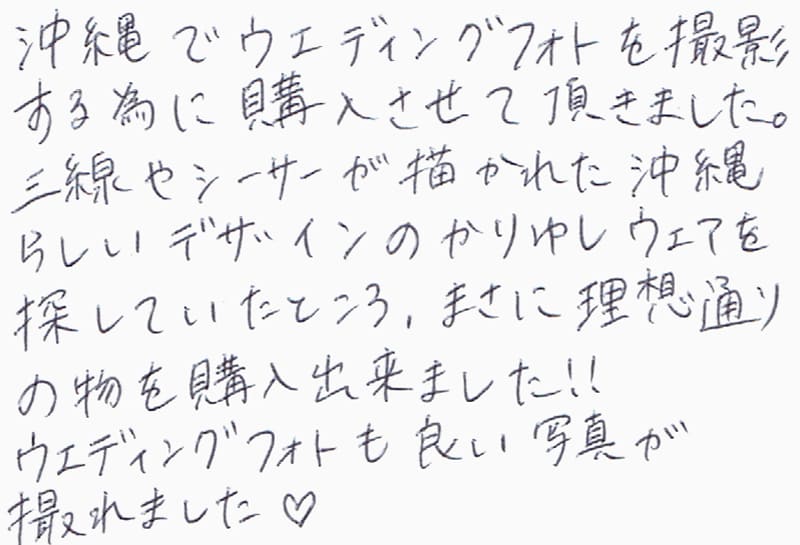 沖縄でウエディングフォトを撮影
する為に購入させて頂きました。
三線やシーサーが描かれた沖縄
らしいデザインのかりゆしウェアを
探していたところ、まさに理想通り
の物を購入出来ました!!
ウエディングフォトも良い写真が
撮れました♡